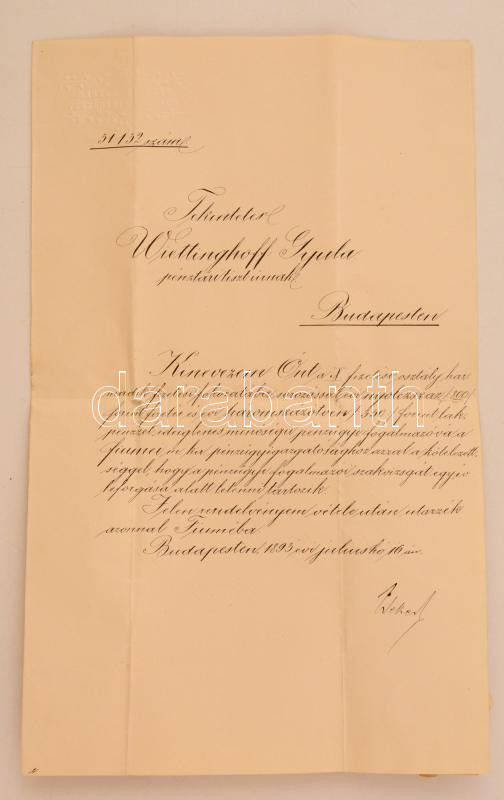 51152 szám
Tekintetes
Wiettinghoff Gyula
pénztári tiszt úrnak
Budapesten
Kinevezem Önt a X fizetési osztály har
madik fizetési fokozatába rendszerű évi nyolczszáz /800/
forint fizetés és évi háromszázötven /350/ forint lak
pénzzel ideiglenes minőségű pénzügyi fogalmazóvá a
fiumei m. kir. pénzügyigazgatósághoz azzal a kötelezett
séggel, hogy a pénzügyi fogalmazói szakvizsgát egy év
leforgása alatt letenni tartozik.
Jelen rendelvényem vétele után utazzék
azonnal Fiuméba.
Budapesten, 1893 évi julius hó 16 án.
Wekerle
darabanth